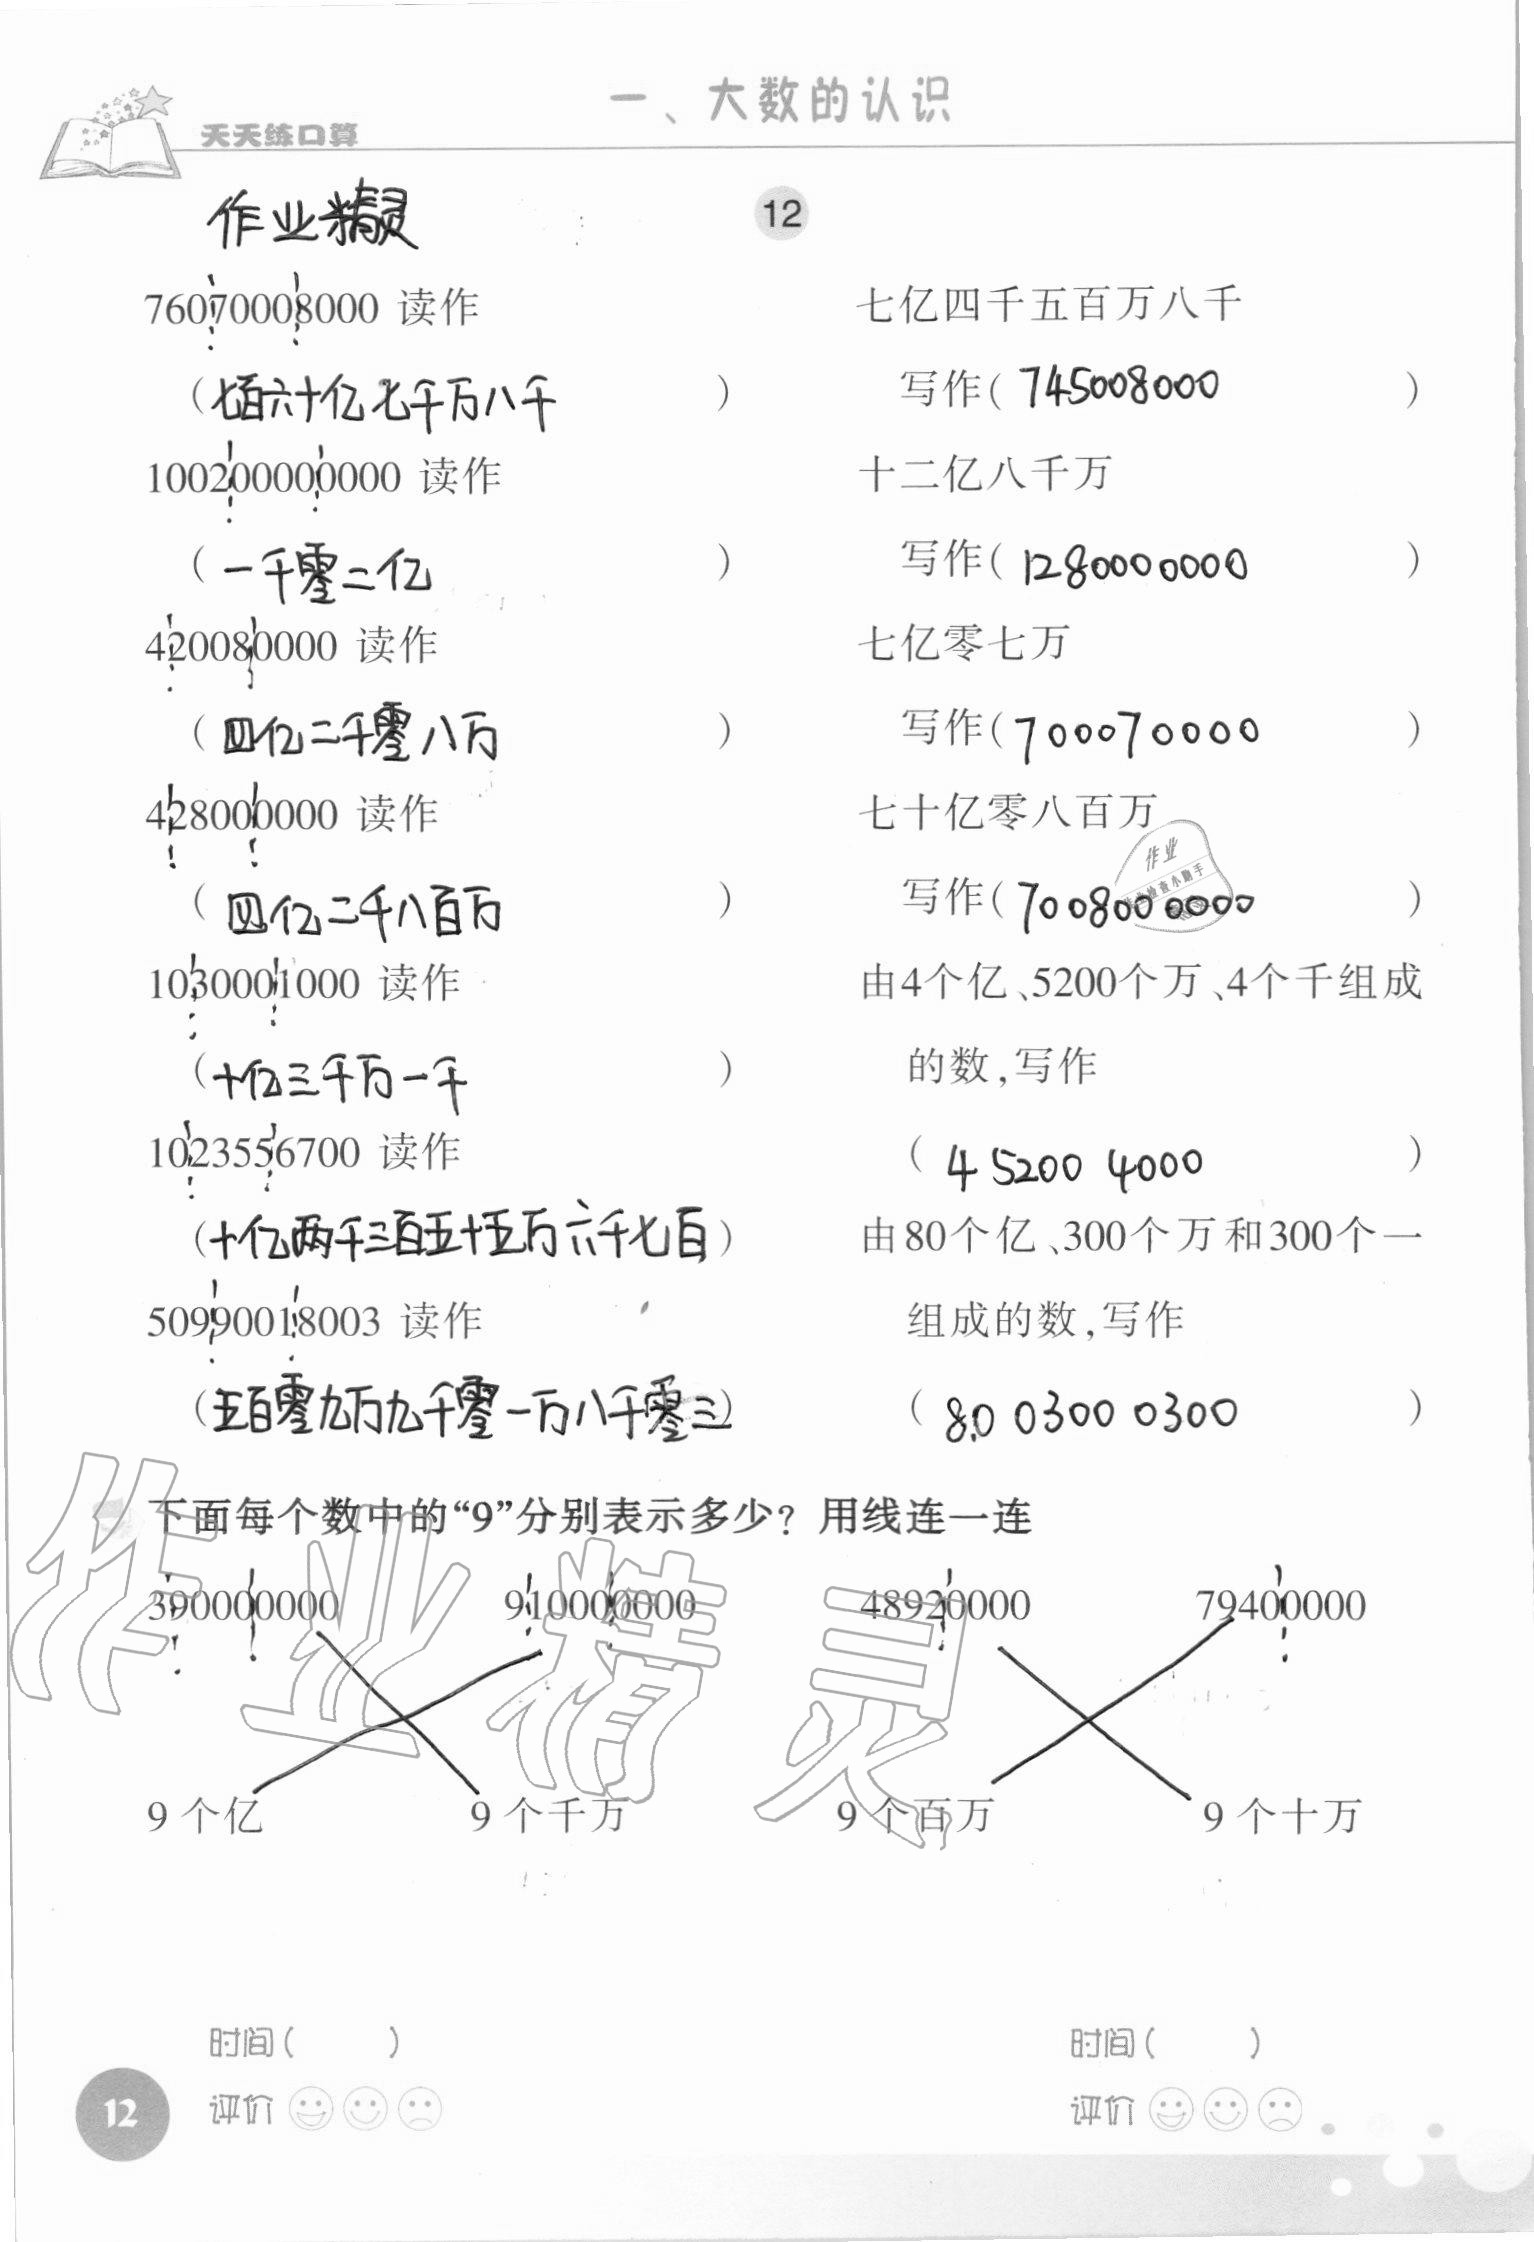 一、大数的认识
天天练口算
作业精灵
12
76070008000 读作
七亿四千五百万八千
(七百六十亿七千万八千)
写作(745008000)
100200000000 读作
十二亿八千万
(一千零二亿)
写作(1280000000)
420080000 读作
七亿零七万
(四亿二千零八万)
写作(700070000)
428000000 读作
七十亿零八百万
(四亿二千八百万)
写作(7008000000)
作业
检查小助手
1030001000 读作
由4个亿、5200个万、4个千组成
(十亿三千万一千)
的数,写作
1023556700 读作
(4 5200 4000)
(十亿两千三百五十五万六千七百)
由80个亿、300个万和300个一
50990018003 读作
组成的数,写作
(五百零九万九千零一万八千零三)
(80 0300 0300)
下面每个数中的“9”分别表示多少?用线连一连
390000000 910000000 48920000 79400000
9个亿 9个千万 9个百万 9个十万
作业精灵
时间( ) 时间( )
评价 评价
12